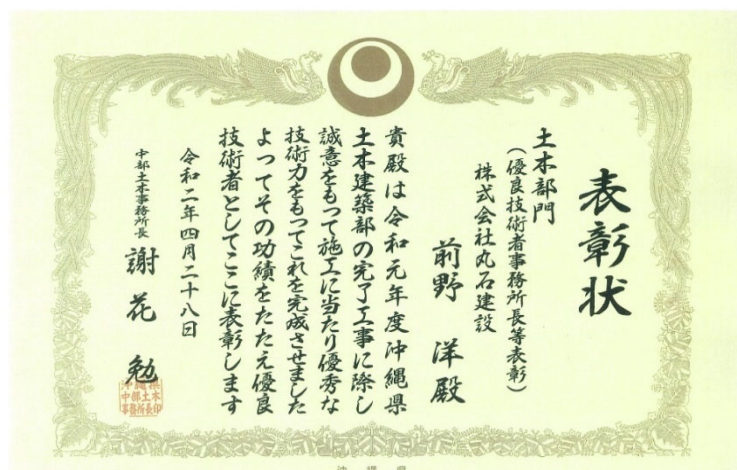 表彰状
土木部門
（優良技術者事務所長等表彰）
株式会社丸石建設
前野 洋殿
貴殿は令和元年度沖縄県
土木建築部の完了工事に際し
誠意をもって施工に当たり優秀な
技術力をもってこれを完成させました
よってその功績をたたえ優良
技術者としてここに表彰します
令和二年四月二十八日
中部土木事務所長 謝花 勉
沖縄県
中部土木
事務所長印
沖縄県